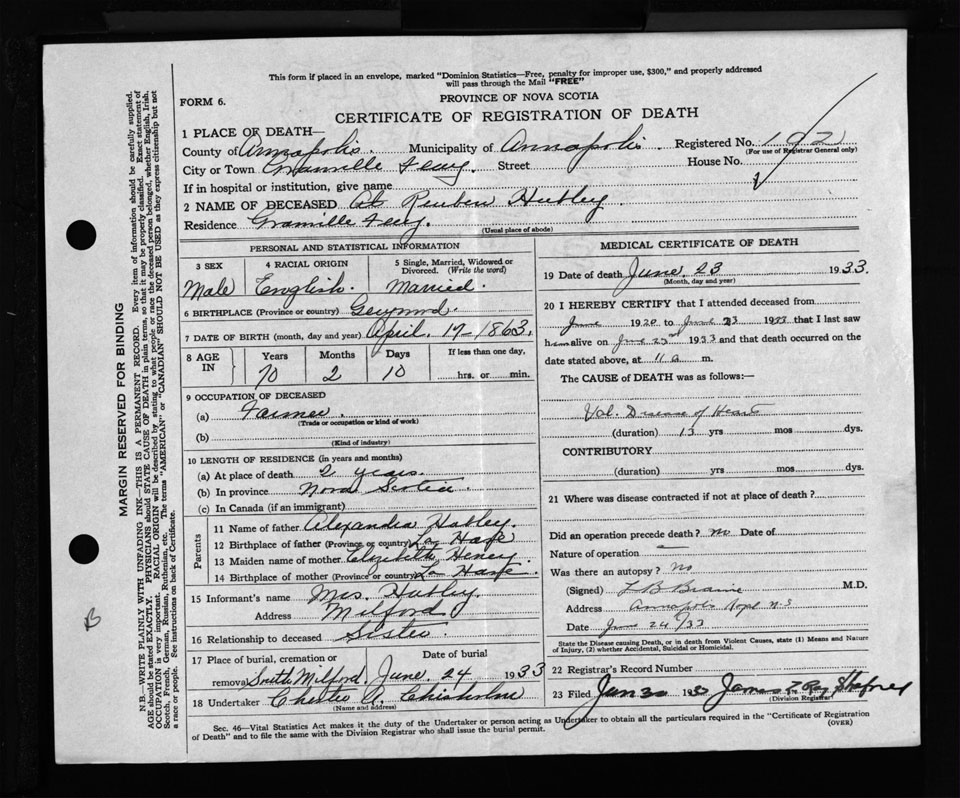 This form if placed in an envelope, marked "Dominion Statistics—Free, penalty for improper use, $300," and properly addressed
will pass through the Mail "FREE"
FORM 6.
PROVINCE OF NOVA SCOTIA
CERTIFICATE OF REGISTRATION OF DEATH
1 PLACE OF DEATH—
County of Annapolis. Municipality of Annapolis. Registered No. 192
(For use of Registrar General only)
City or Town Granville Ferry. Street House No.
If in hospital or institution, give name
2 NAME OF DECEASED Reuben Hubley
Residence Granville Ferry.
(Usual place of abode)
PERSONAL AND STATISTICAL INFORMATION
3 SEX 4 RACIAL ORIGIN 5 Single, Married, Widowed or
Divorced. (Write the word)
Male English. Married.
6 BIRTHPLACE (Province or country)
7 DATE OF BIRTH (month, day and year) April. 17-1863.
8 AGE IN Years Months Days If less than one day,
70 2 10 hrs. or min.
9 OCCUPATION OF DECEASED
(a) Farmer.
(Trade or occupation or kind of work)
(b)
(Kind of industry)
10 LENGTH OF RESIDENCE (in years and months)
(a) At place of death 2 years.
(b) In province Nova Scotia
(c) In Canada (if an immigrant)
Parents
11 Name of father Hubley.
12 Birthplace of father (Province or country) La Have
13 Maiden name of mother Elizabeth Heney
14 Birthplace of mother (Province or country) La Have
15 Informant's name Mrs. Hubley.
Address Milford
16 Relationship to deceased Sister
17 Place of burial, cremation or Date of burial
removal South Milford. June. 24 1933
18 Undertaker Chester A. Chisholm
(Name and address)
MEDICAL CERTIFICATE OF DEATH
19 Date of death June 23 1933.
(Month, day and year)
20 I HEREBY CERTIFY that I attended deceased from
June 1920 to June 23 1933 that I last saw
him alive on June 23 1933 and that death occurred on the
date stated above, at 11 a m.
The CAUSE of DEATH was as follows:—
Val. Disease of Heart
(duration) 13 yrs mos dys.
CONTRIBUTORY
(duration) yrs mos dys.
21 Where was disease contracted if not at place of death?
Did an operation precede death? no Date of
Nature of operation
Was there an autopsy? No
(Signed) L B Braine M.D.
Address Annapolis Royal N.S
Date June 24/33
State the Disease causing Death, or in death from Violent Causes, state (1) Means and Nature
of Injury, (2) whether Accidental, Suicidal or Homicidal.
22 Registrar's Record Number
23 Filed 193
(Division Registrar)
Sec. 46—Vital Statistics Act makes it the duty of the Undertaker or person acting as Undertaker to obtain all the particulars required in the "Certificate of Registration
of Death" and to file the same with the Division Registrar who shall issue the burial permit. (OVER)
MARGIN RESERVED FOR BINDING
N.B.—WRITE PLAINLY WITH UNFADING INK—THIS IS A PERMANENT RECORD. Every item of information should be carefully supplied.
AGE should be stated EXACTLY. PHYSICIANS should STATE CAUSE OF DEATH in plain terms, so that it may be properly classified. Exact statement of
OCCUPATION is very important. RACIAL ORIGIN will be described by stating to what people or race the deceased person belonged, whether English, Irish,
Scotch, French, German, Russian, Ruthenian, etc. The terms "AMERICAN" or "CANADIAN" SHOULD NOT BE USED as they express citizenship but not
a race or people. See instructions on back of Certificate.
B